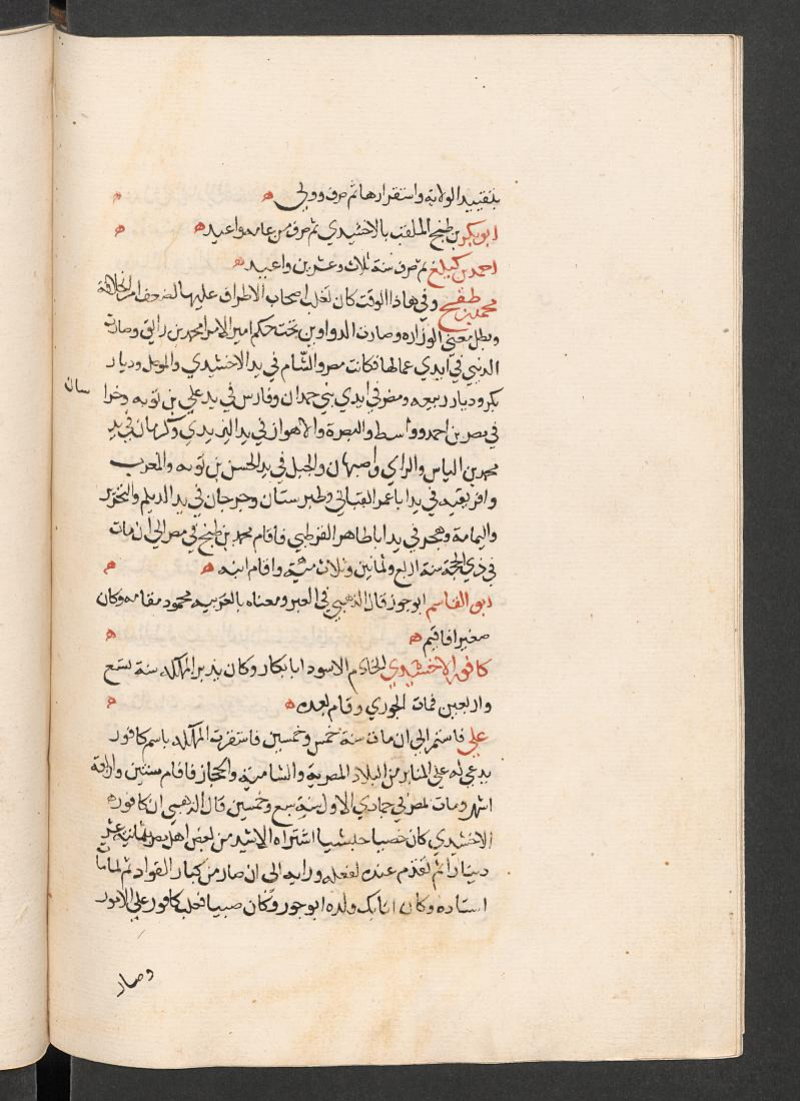 بتقييد الولاية واستقرارها ثم صرف وولي
ابو بكر بن طنج الملقب بالاخشيدي ثم صرف من عامه واعيد
احمد بن كيلغ ثم صرف سنة ثلاث وعشرين واعيد
محمد بن طفج وفي هاذا الوقت كان تغلب اصحاب الاطراف عليها لضعف امر الخلافة
وبطل معنى الوزاره وصارت الدواوين تحت حكم امير الامرا محمد بن رايق وصارت
الدنيي في ايدي عمالها فكانت مصر والشام في يد الاخشيدي والموصل وديار
بكر وديار ربيعه ومضر في ايدي بني حمدان وفارس في يد علي بن بويه وخرا
سان
في نصر بن احمد وواسط والبصرة والاهواز في يد اليزيدي وكرمان في يد
محمد بن الياس والراي واصبهان والجبل في يد الحسن بن بويه والمغرب
وافريقيه في يد ابا عمر الغساني وطبرستان وجرجان في يد الديلم والبحرين
واليمامة وهجر في يد ابا طاهر القرطبي فاقام محمد بن طنج في مصر الى ان مات
في ذي الحجة سنة اربع وثمانين وثلاث مئية واقام ابنه
ابو القاسم ابو جوز قال الذهبي في العبر ومعناه بالعربيه محمود مقامه وكان
صغيرا فاقيم
كافور الاخشيدي الخادم الاسود ابابكار وكان يدبر المملكه سنة تسع
واربعين فمات الجوزي وقام بعده
علي فاستمر الى ان مات سنة خمس وخمسين فاستقرت المملكه باسم كافور
يدعى له على المنابر من البلاد المصرية والشامية والحجاز فاقام سنتين واربعة
اشهر ومات بمصر في جمادي الاول سنة سبع وخمسين قال الذهبي ان كافور
الاخشيدي كان خصيا حبشيا اشتراه الاشيد من بعض اهل مصر بثمانية عشر
دينارا ثم تقدم عنده لعقله ورايه الى ان صار من كبار القواد ثم لما مات
استاده وكان اتابك ولده ابو جوز وكان صبيا فغلب كافور على الامور
وصار